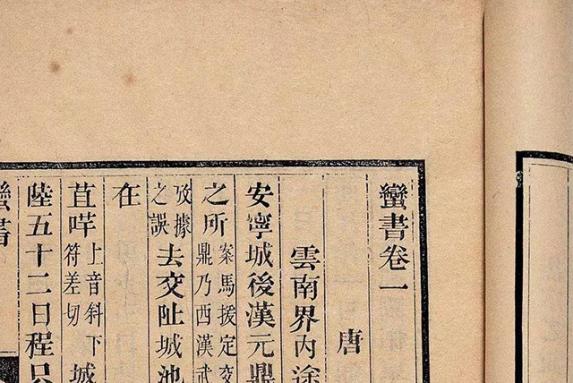 蠻書卷一
唐
雲南界內途
安寧城後漢元鼎
之所案馬援定交
鼎乃西漢武
㪅據
之誤去交阯城池
在
苴咩上音斜下
符差切城
陸五十二日程只
蠻書